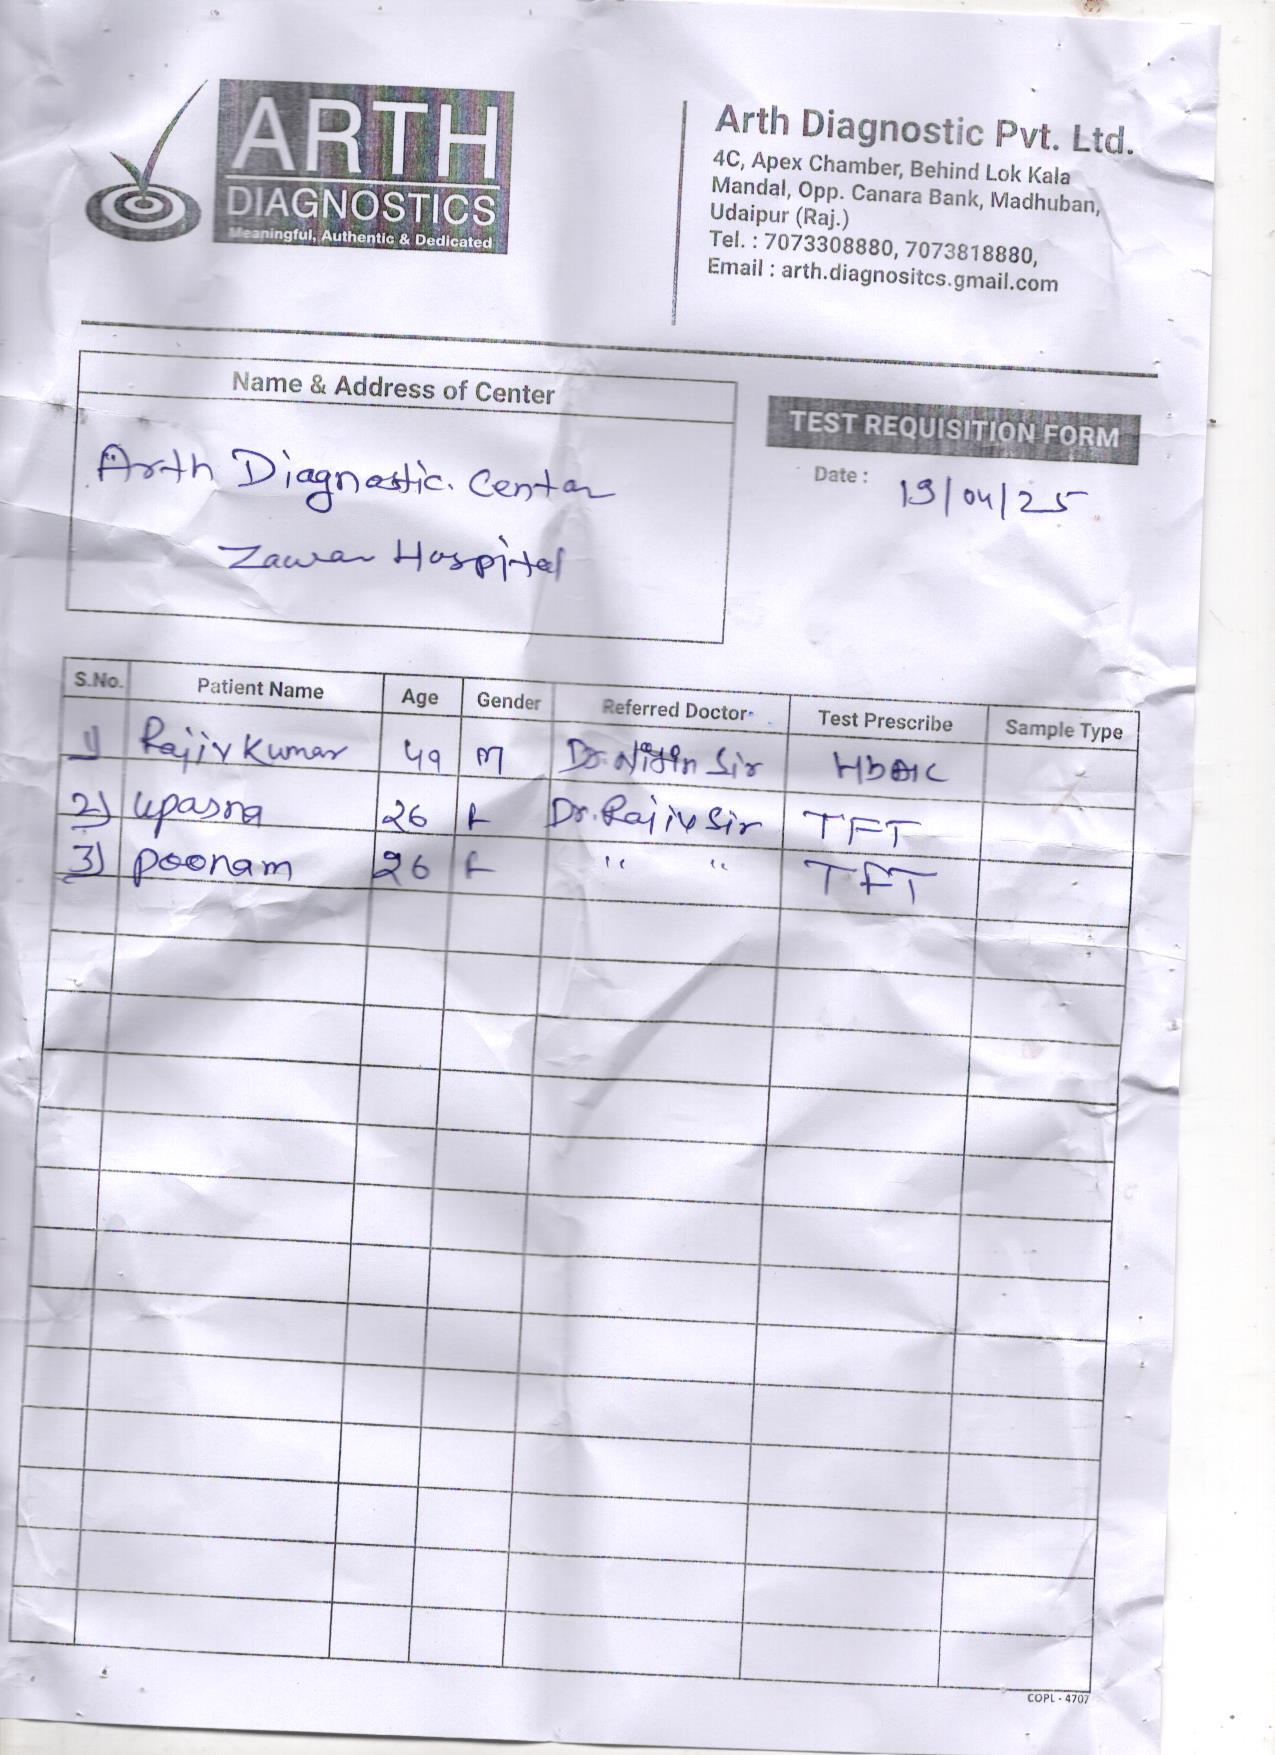 ARTH
DIAGNOSTICS
Meaningful, Authentic & Dedicated
Arth Diagnostic Pvt. Ltd.
4C, Apex Chamber, Behind Lok Kala
Mandal, Opp. Canara Bank, Madhuban,
Udaipur (Raj.)
Tel. : 7073308880, 7073818880,
Email : arth.diagnositcs.gmail.com
Name & Address of Center
Arth Diagnostic. Centar
Zawar Hospital
TEST REQUISITION FORM
Date : 19/04/25
S.No. Patient Name Age Gender Referred Doctor Test Prescribe Sample Type
1) Rajiv Kumar 49 M Dr. Nitin Sir HbA1C
2) upasna 26 F Dr. Rajiv Sir TFT
3) poonam 26 F " " TFT
COPL - 4707